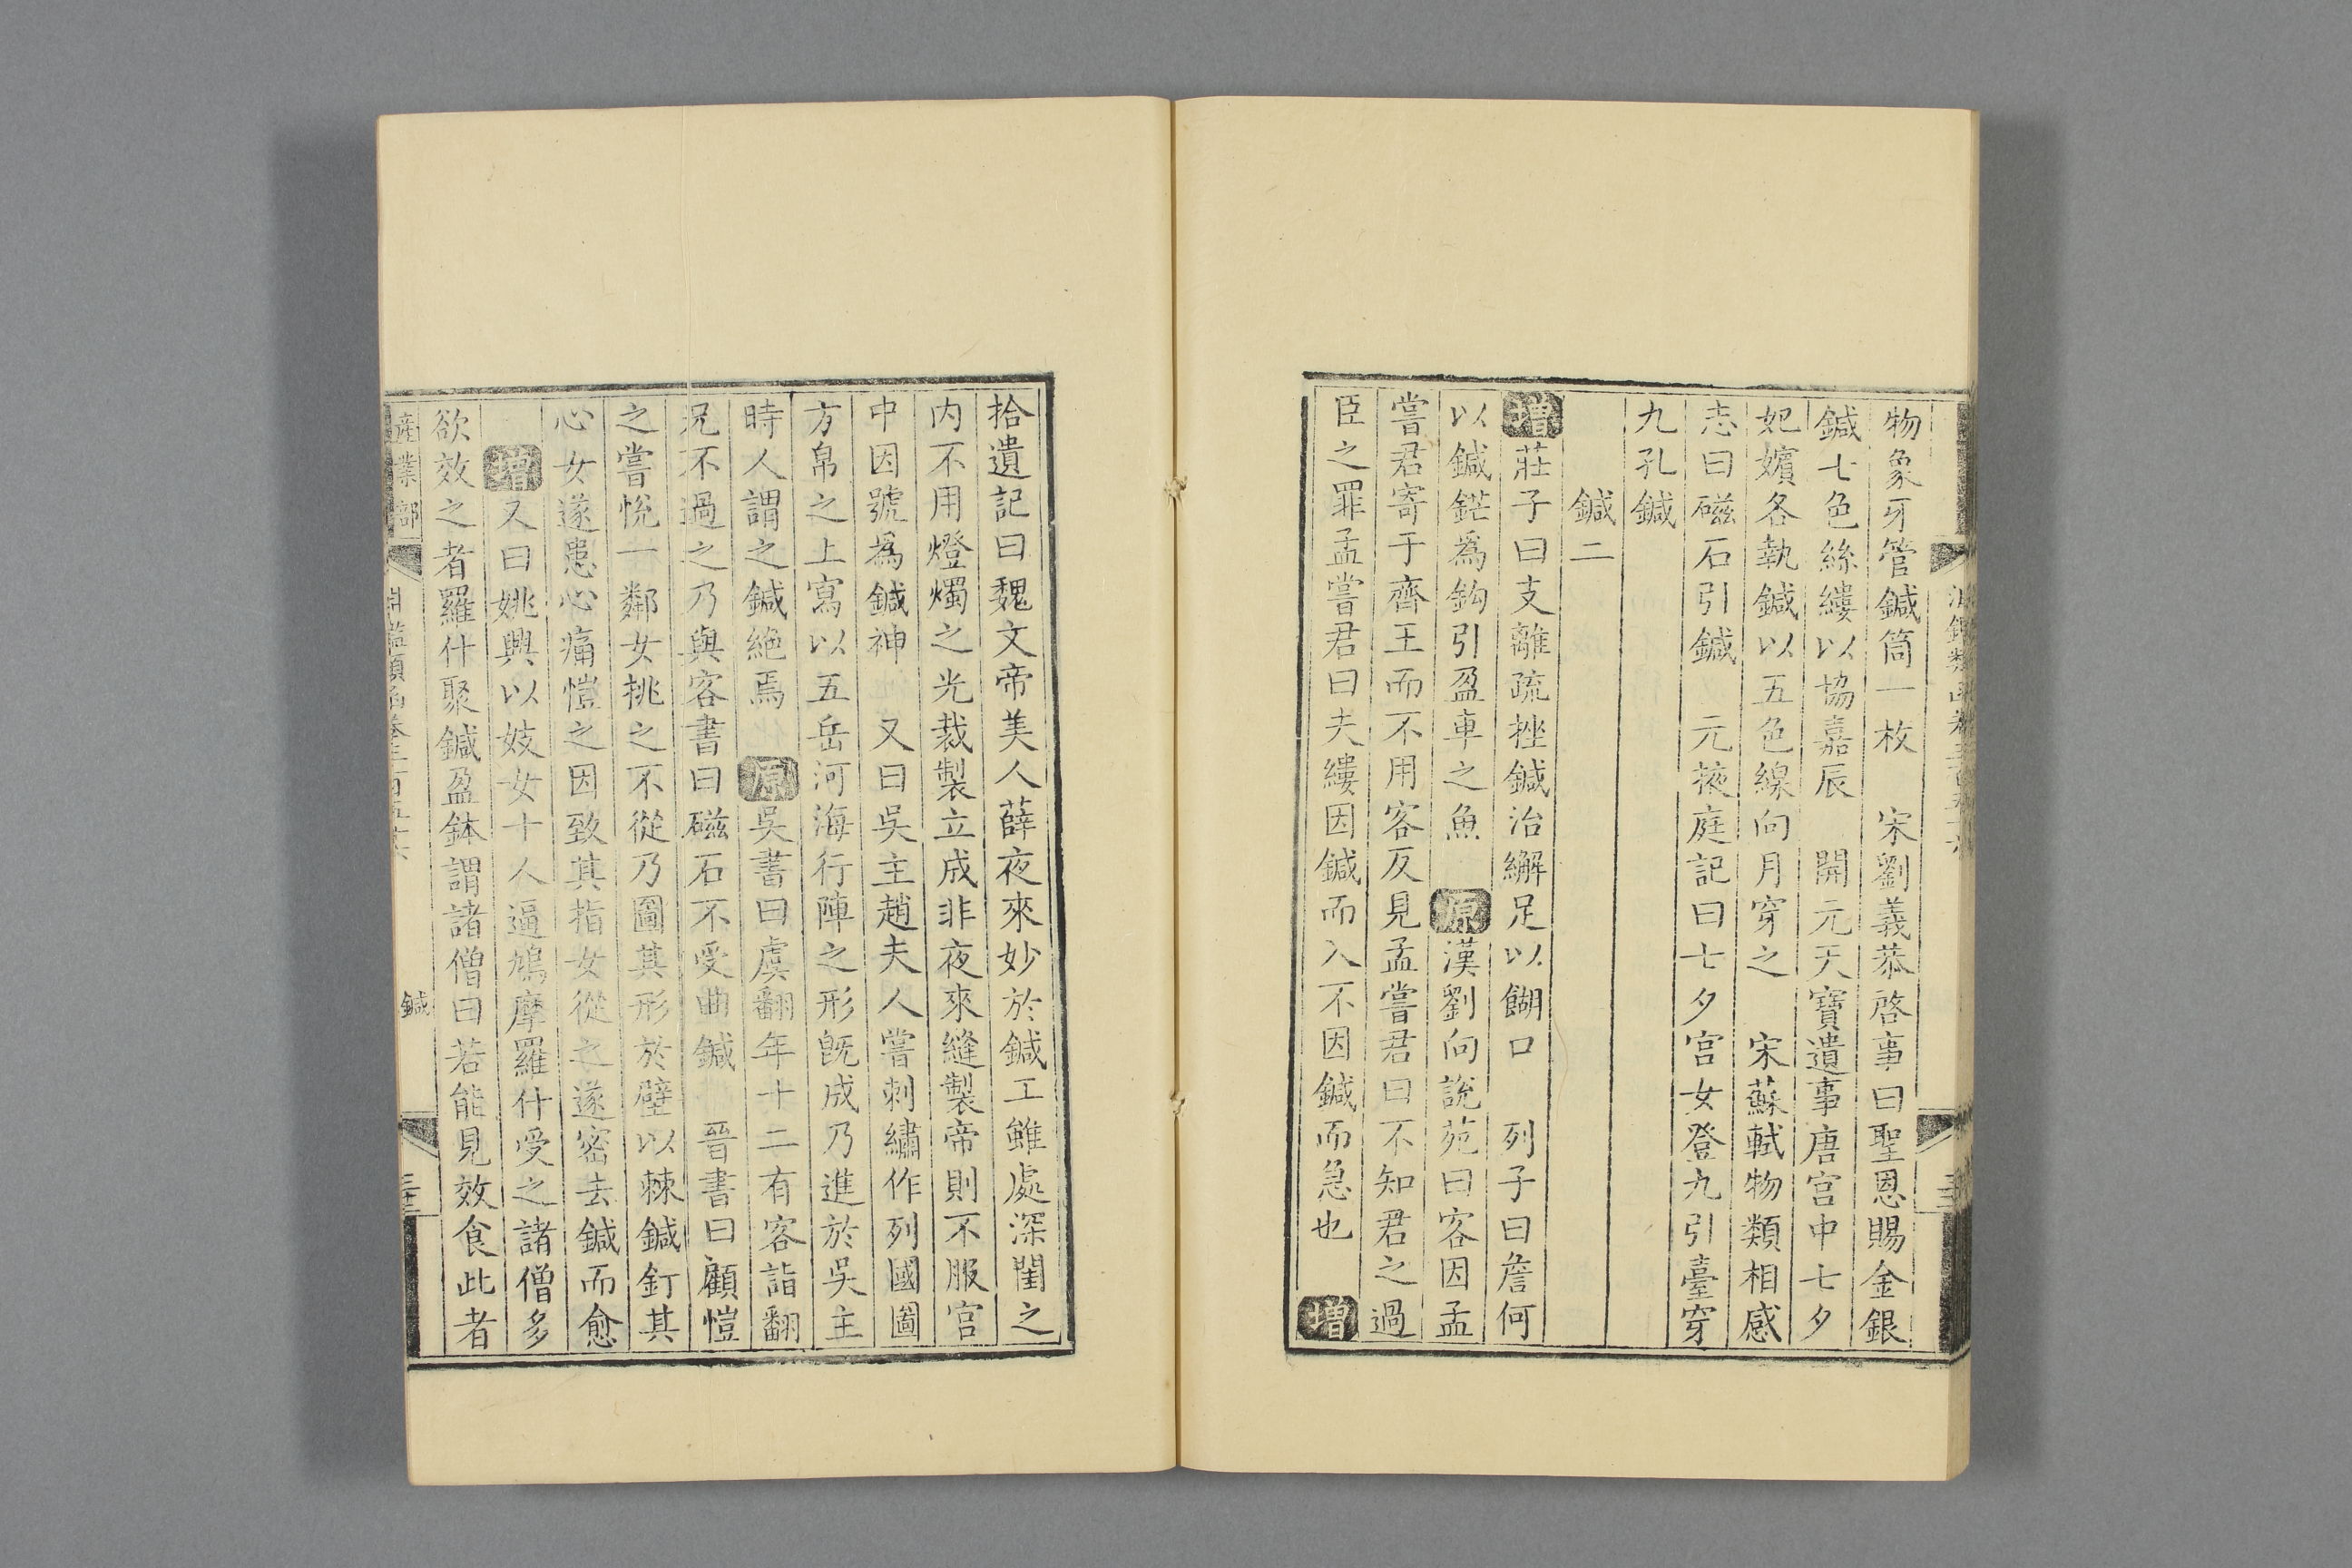 物象牙管鍼筒一枚　宋劉義恭啓事曰聖恩賜金銀
鍼七色絲縷以協嘉辰　開元天寶遺事唐宮中七夕
妃嬪各執鍼以五色線向月穿之　宋蘇軾物類相感
志曰磁石引鍼　元掖庭記曰七夕宮女登九引臺穿
九孔鍼
鍼二
增莊子曰支離疏挫鍼治繲足以餬口　列子曰詹何
以鍼鋩爲鈎引盈車之魚　原漢劉向說苑曰客因孟
嘗君寄于齊王而不用客反見孟嘗君曰不知君之過
臣之罪孟嘗君曰夫縷因鍼而入不因鍼而急也　增
拾遺記曰魏文帝美人薛夜來妙於鍼工雖處深閨之
内不用燈燭之光裁製立成非夜來縫製帝則不服宮
中因號爲鍼神　又曰吳主趙夫人嘗刺繡作列國圖
方帛之上寫以五岳河海行陣之形旣成乃進於吳主
時人謂之鍼絕焉　原吳書曰虞翻年十二有客詣翻
兄不過之乃與客書曰磁石不受曲鍼　晉書曰顧愷
之嘗悅一鄰女挑之不從乃圖其形於壁以棘鍼釘其
心女遂患心痛愷之因致其指女從之遂密去鍼而愈
增又曰姚興以妓女十人逼鳩摩羅什受之諸僧多
欲效之者羅什聚鍼盈鉢謂諸僧曰若能見效食此者
產業部
鍼